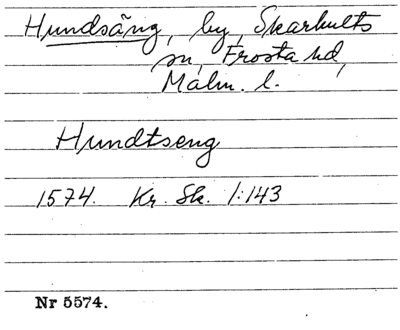 Hundsäng, by, Skarhults
sn, Frosta hd,
Malm. l.
Hundtseng
1574. Kr. Sk. 1:143
Nr 5574.